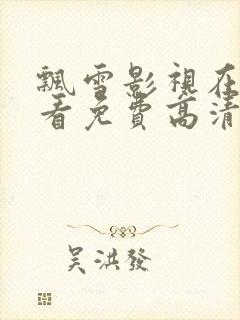 飄雪影視在
看免費高清
吴洪發